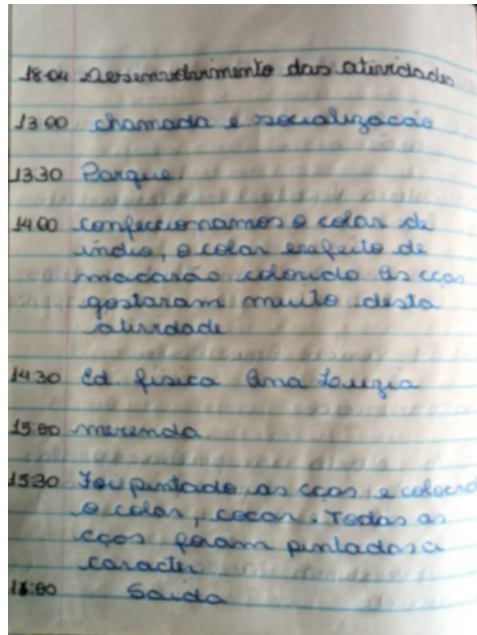 18-04 Desenvolvimento das atividades
13:00 chamada e socialização
13:30 Parque
14:00 confeccionamos o colar de
índio, o colar era feito de
macarão colorido as cças
gostaram muito desta
atividade
14:30 Ed. física Ana Luzia
15:00 merenda
15:30 Foi pintado as cças e colocado
o colar, cocar. Todas as
cças foram pintadas a
caracter
Saida